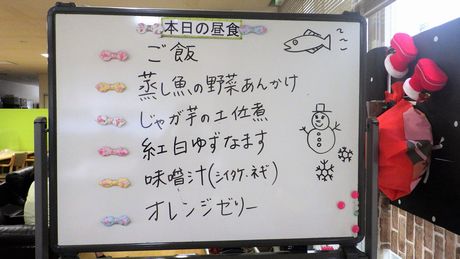 本日の昼食
ご飯
蒸し魚の野菜あんかけ
じゃが芋の工位煮
紅白ゆずなます
味噌汁(シイタケ・ネギ)
オレンジゼリー